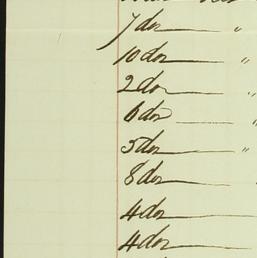 7 doz — "
10 doz — "
2 doz — "
6 doz — "
5 doz — "
8 doz —
4 doz —
4 doz —